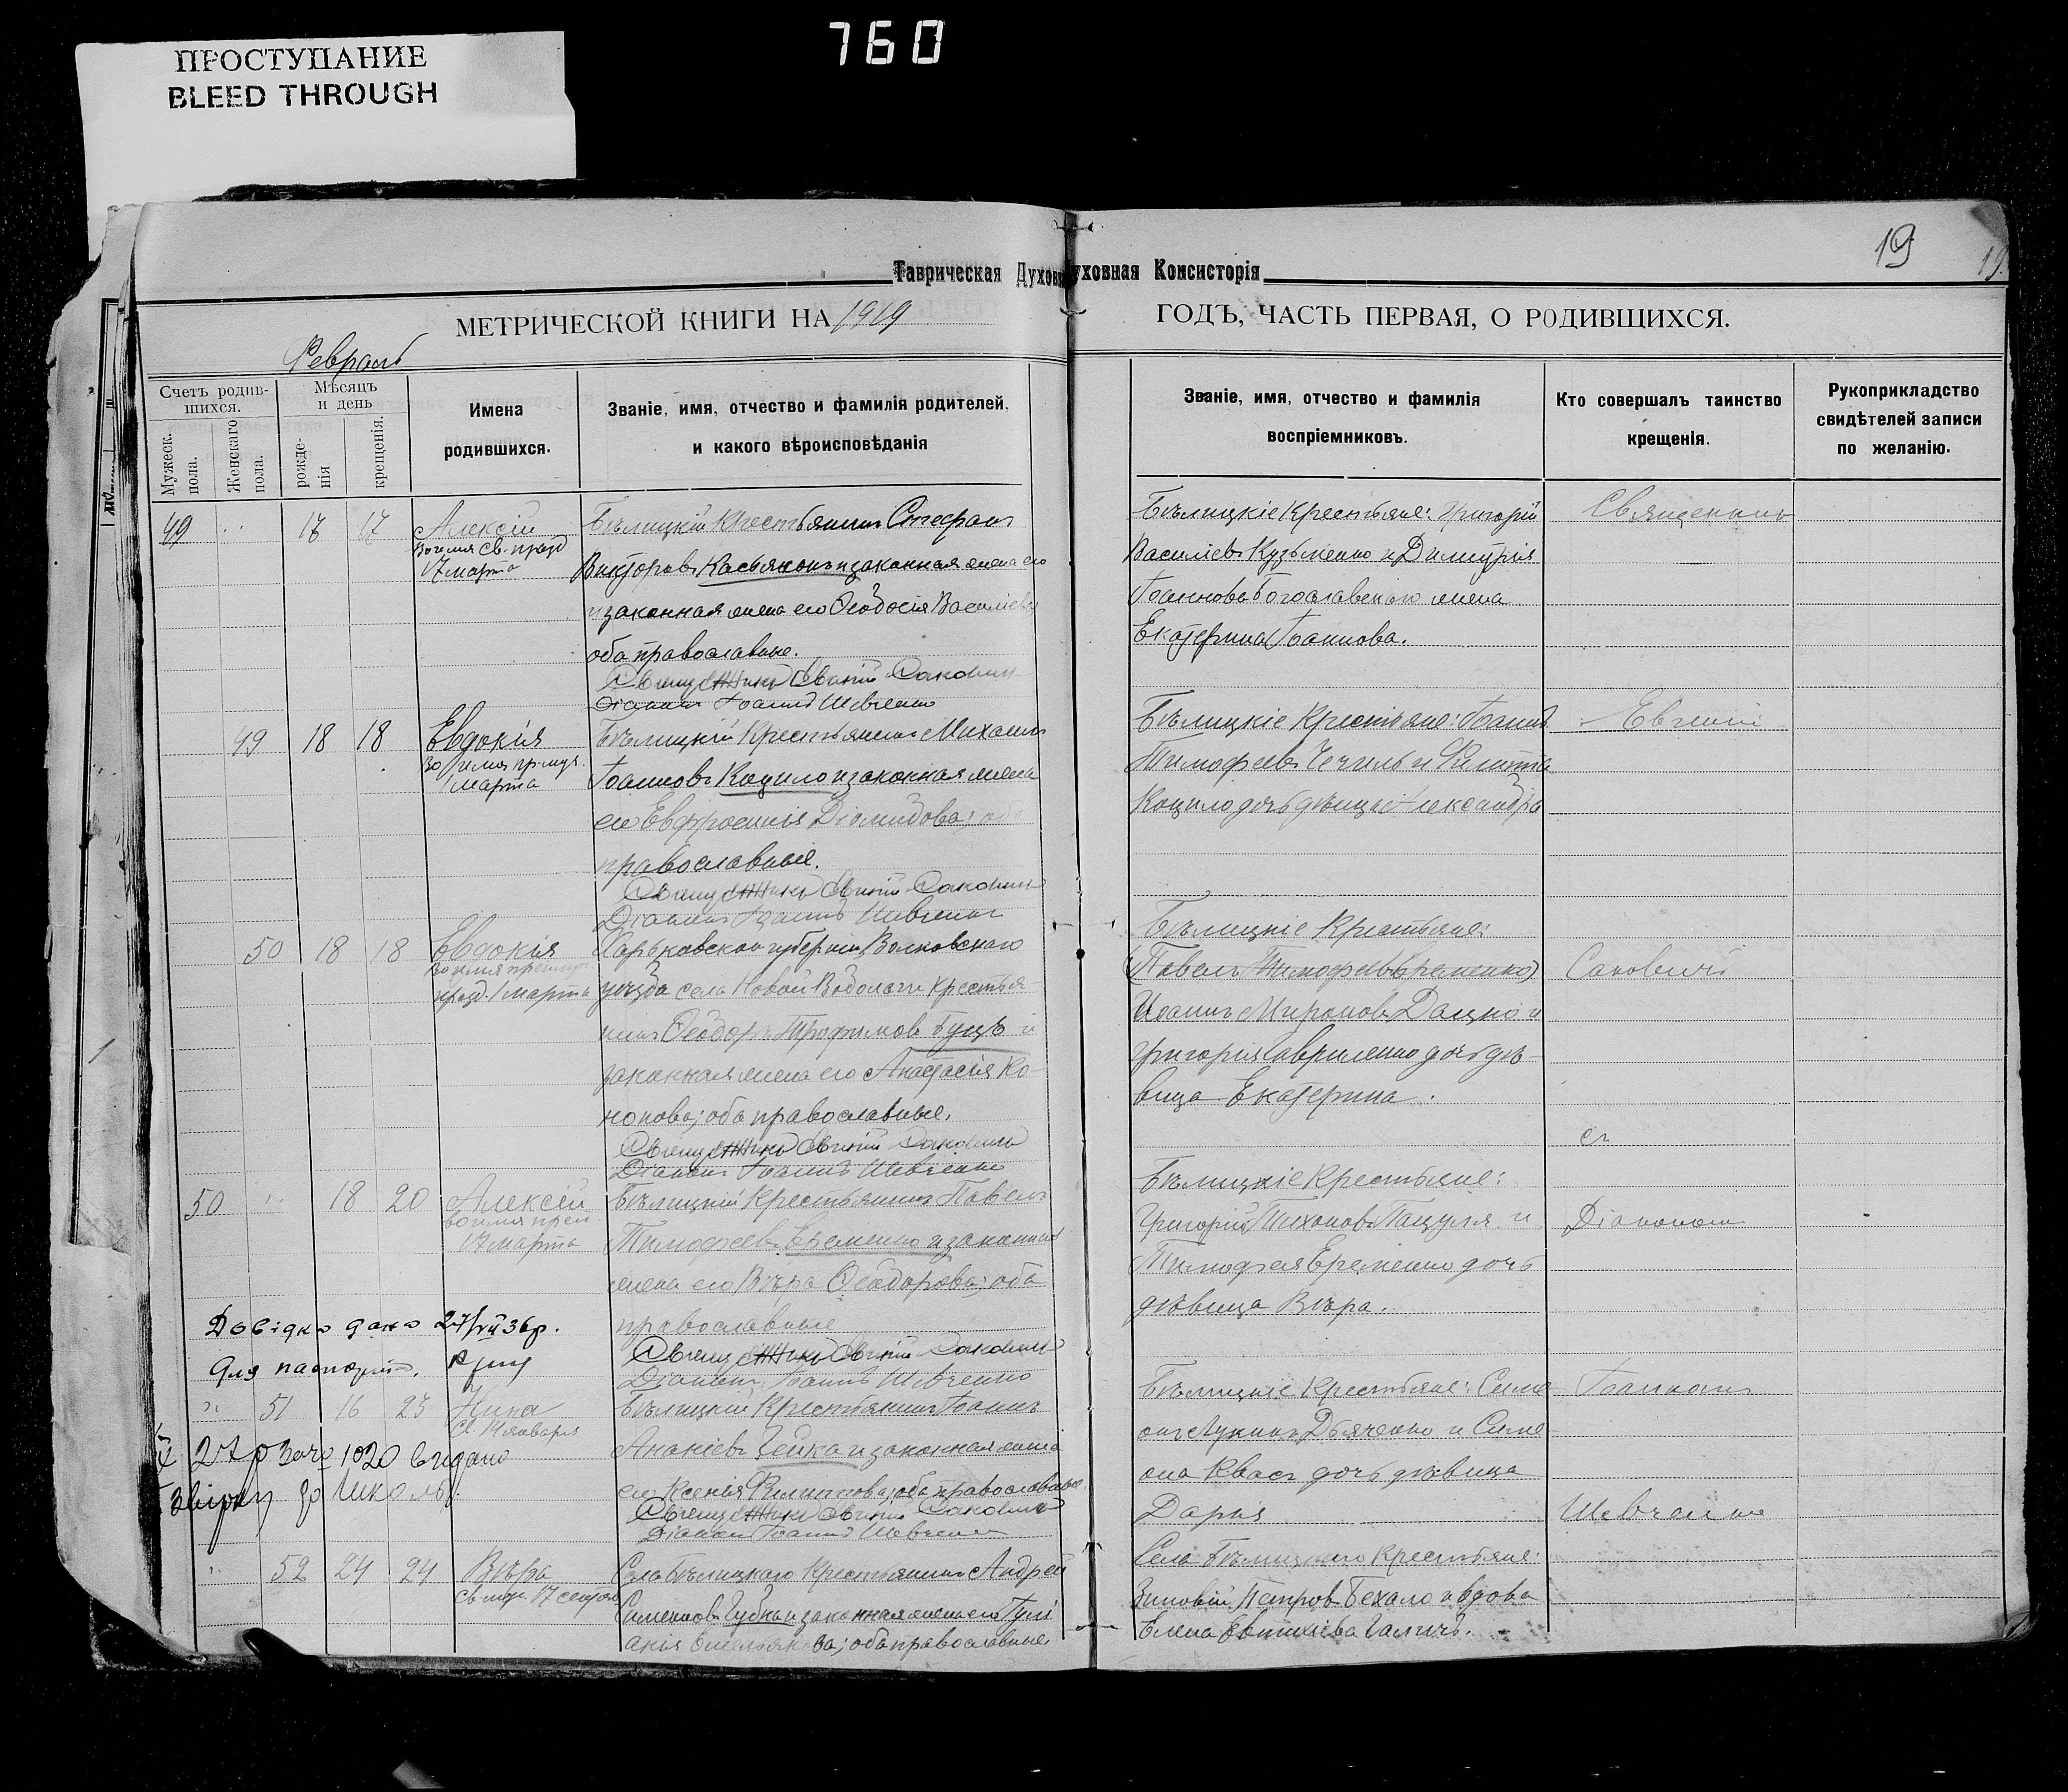 760
ПРОСТУПАНИЕ
BLEED THROUGH
19
19.
Таврическая Духовн
уховная Консисторія
МЕТРИЧЕСКОЙ КНИГИ НА 1919
ГОДЪ, ЧАСТЬ ПЕРВАЯ, О РОДИВШИХСЯ.
Февраль
Счетъ родив-
шихся.
Мужеск.
пола.
Женскаго
пола.
Мѣсяцъ
и день
рожде-
нія
крещенія.
Имена
родившихся.
Званіе, имя, отчество и фамилія родителей,
и какого вѣроисповѣданія
Званіе, имя, отчество и фамилія
воспріемниковъ.
Кто совершалъ таинство
крещенія.
Рукоприкладство
свидѣтелей записи
по желанію.
49 17 17 Алексій
17 марта
Бѣлицкій Крестьянинъ Стефанъ
Викторовъ Касьянонъ и законная жена его
и законная жена его Ѳеодосія Василіева
оба православные.
Діаконъ Іоаннъ Шевченко
Бѣлицкіе Крестьяне: Григорій
Василіевъ Кузьменко и Димитрія
Іоаннова Богославскаго жена
Екатерина Іоаннова.
Священникъ
49 18 18 Евдокія
1 марта
Бѣлицкій Крестьянинъ Михаилъ
Іоанновъ Коцило и законная жена
его Евфросинія Діомидова; оба
православные.
Діаконъ Іоаннъ Шевченко
Бѣлицкіе Крестьяне: Іоаннъ
Тимофеевъ Чечиль и Филиппа
Коцило дочь дѣвица Александра
Евгеній
50 18 18 Евдокія
1 марта
Харьковской губерніи, Волковскаго
уѣзда села Новой Водолаги крестья-
нинъ Ѳеодоръ Трофимовъ Буцъ и
законная жена его Анастасія Ко-
нонова; оба православные.
Діаконъ Іоаннъ Шевченко
Бѣлицкіе Крестьяне:
(Павелъ Тимофеевъ Еременко)
Иоаннъ Мироновъ Дацко и
Григорія Гавриленко дочь дѣ-
вица Екатерина.
Саковичъ
съ
50 18 20 Алексій
17 марта
Бѣлицкій Крестьянинъ Павелъ
Тимофеевъ Еременко и законная
жена его Вѣра Ѳеодорова; оба
православные
Діаконъ Іоаннъ Шевченко
Бѣлицкіе Крестьяне:
Григорій Тихоновъ Пацуля и
Тимофея Еременко дочь
дѣвица Вѣра.
Діакономъ
Довідка дана 27/VII 36р.
Для паспорта.
51 16 23 Нина
св. 14 января
Бѣлицкій Крестьянинъ Іоаннъ
Ананіевъ Чейка и законная жена
его Ксенія Филиппова; оба православные
Діаконъ Іоаннъ Шевченко
Бѣлицкіе Крестьяне: Симе-
онъ Лукинъ Дьяченко и Симе-
она Квасъ дочь дѣвица
Дарія
Іоанномъ
Шевченко
1020 видано
до школы.
52 24 24 Вѣра
Села Бѣлицкаго Крестьянинъ Андрей
Симеоновъ Губка и законная жена его Іулі
анія Емельянова; оба православные.
Села Бѣлицкаго Крестьяне:
Зиновій Петровъ Бехало и вдова
Елена Евтихіева Галичъ.